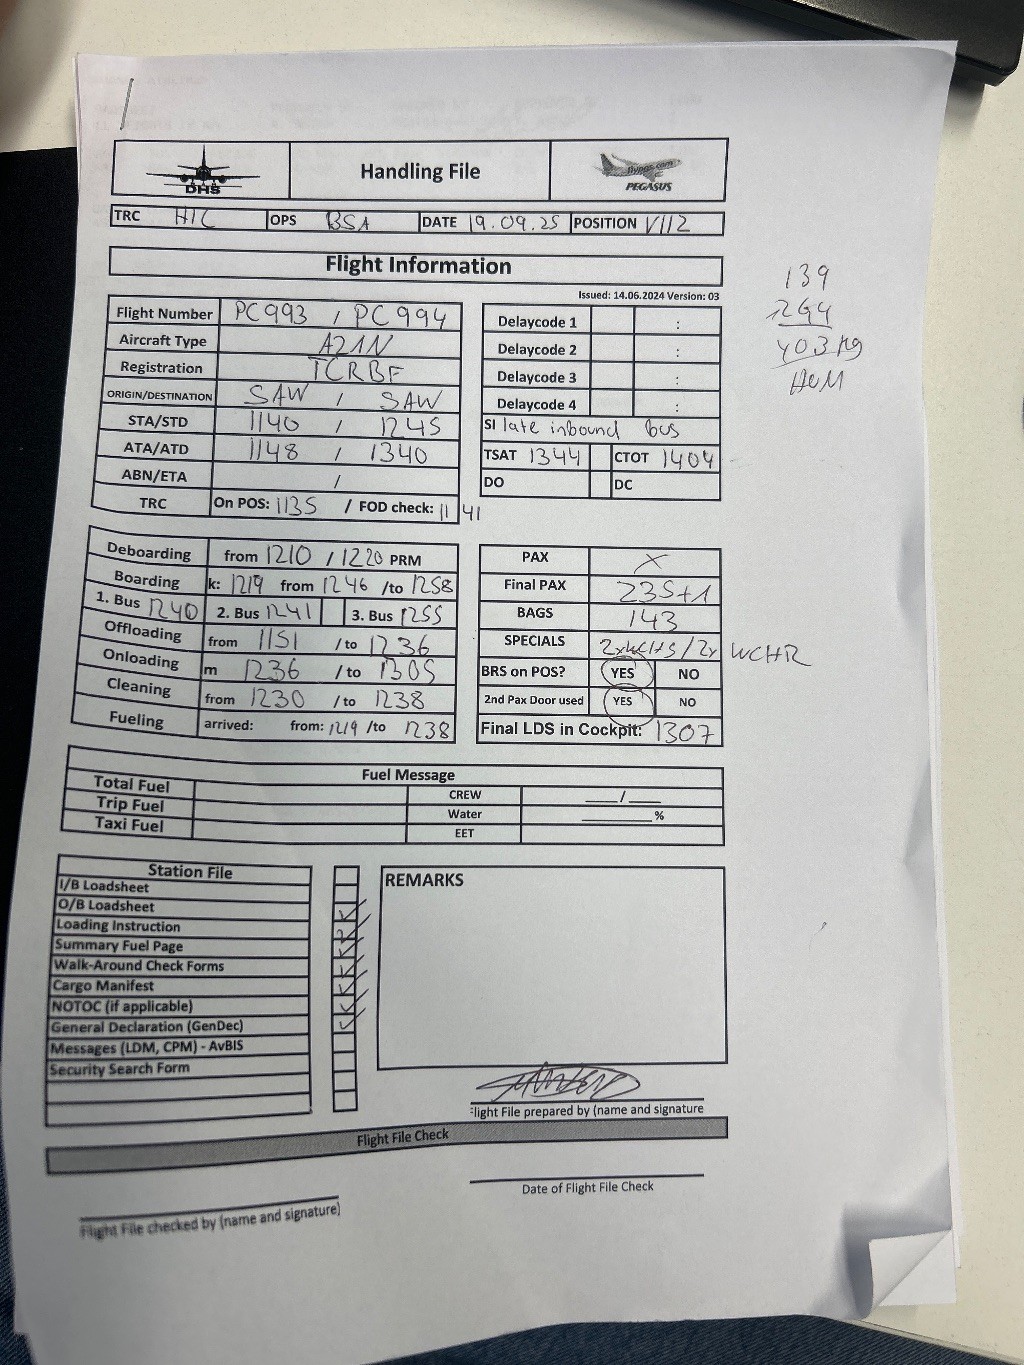 DHS
Handling File
flypgs.com
PEGASUS
TRC HIC OPS BSA DATE 19.09.25 POSITION V112
Flight Information
Issued: 14.06.2024 Version: 03
139
264
403 kg
Flight Number PC993 / PC994
Aircraft Type A21N
Registration TCRBF
ORIGIN/DESTINATION SAW / SAW
STA/STD 1140 / 1245
ATA/ATD 1148 / 1340
ABN/ETA /
TRC On POS: 1135 / FOD check: 1141
Delaycode 1 :
Delaycode 2 :
Delaycode 3 :
Delaycode 4 :
SI late inbound bus
TSAT 1344 CTOT 1404
DO DC
Deboarding from 1210 / 1220 PRM
Boarding k: 1219 from 1246 /to 1258
1. Bus 1240 2. Bus 1241 3. Bus 1255
Offloading from 1151 /to 1236
Onloading m 1236 /to 1305
Cleaning from 1230 /to 1238
Fueling arrived: from: 1219 /to 1238
PAX X
Final PAX 235+1
BAGS 143
SPECIALS 2xWCHS/2x WCHR
BRS on POS? YES NO
2nd Pax Door used YES NO
Final LDS in Cockpit: 1307
Fuel Message
Total Fuel CREW ___/___
Trip Fuel Water ________%
Taxi Fuel EET
Station File
I/B Loadsheet
O/B Loadsheet
Loading Instruction
Summary Fuel Page
Walk-Around Check Forms
Cargo Manifest
NOTOC (if applicable)
General Declaration (GenDec)
Messages (LDM, CPM) - AvBIS
Security Search Form
REMARKS
Flight File prepared by (name and signature
Flight File Check
Date of Flight File Check
Flight File checked by (name and signature)